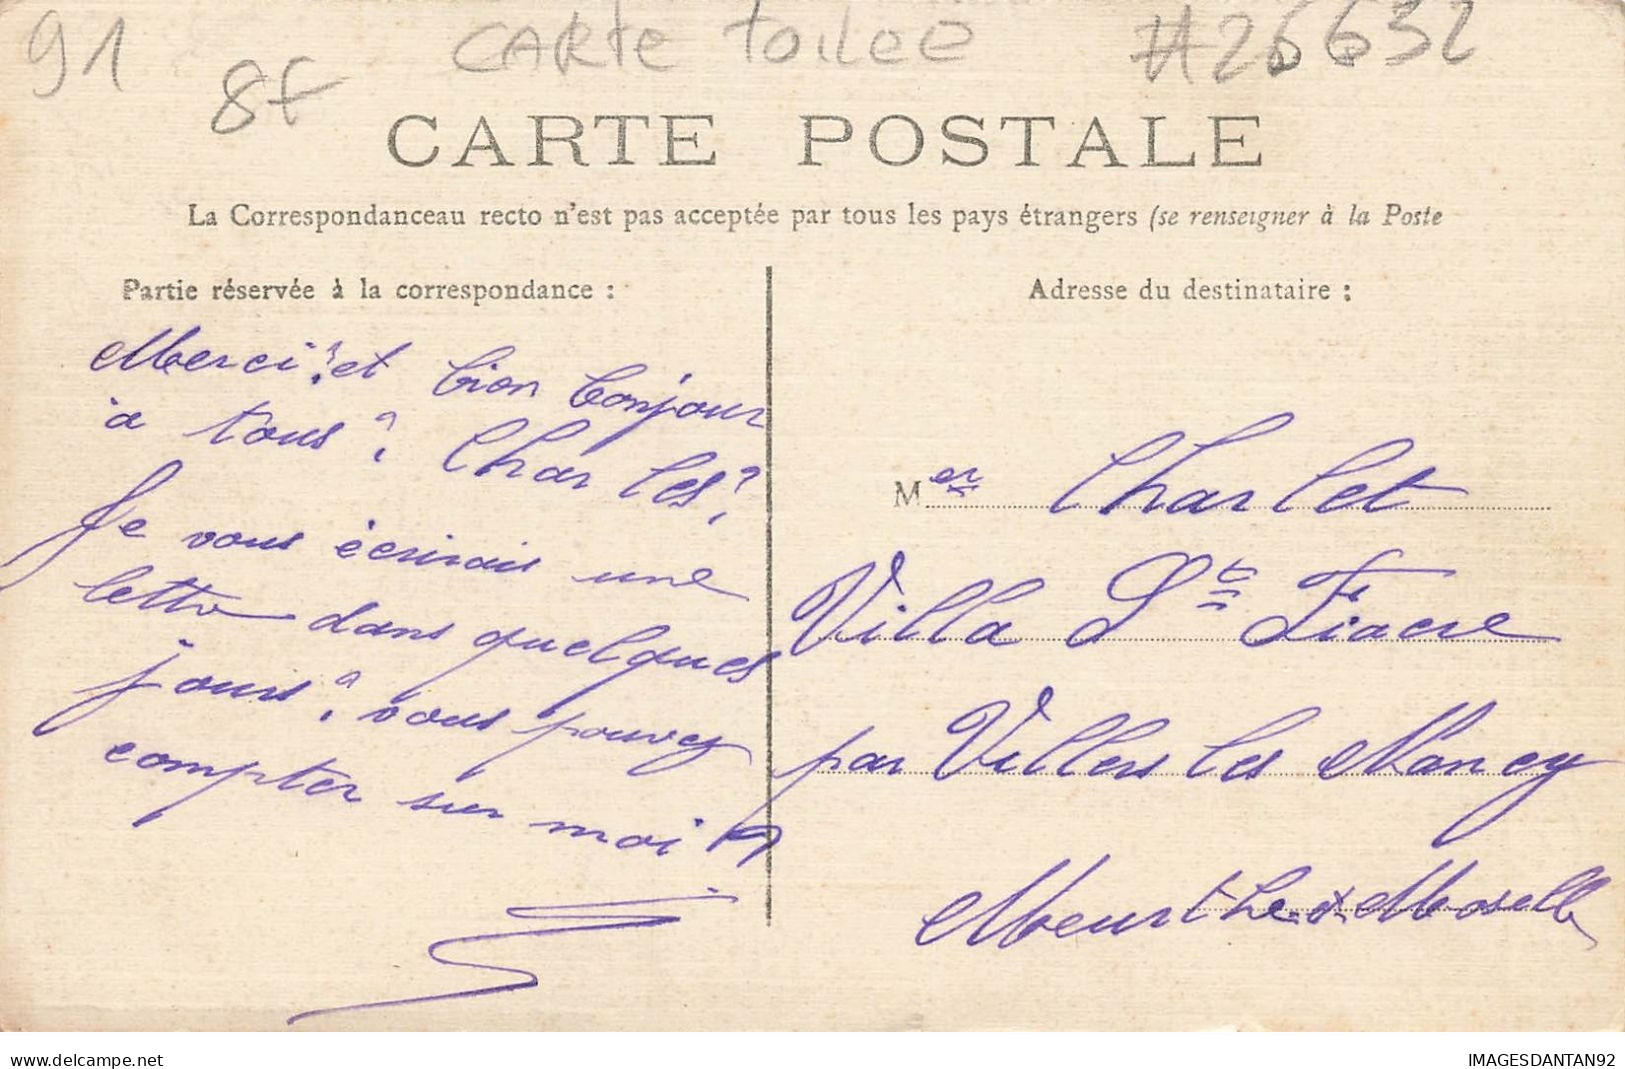 91
8f
CARTE TOILEE
#26632
CARTE POSTALE
La Correspondanceau recto n'est pas acceptée par tous les pays étrangers (se renseigner à la Poste
Partie réservée à la correspondance :
Merci? et bien bonjour
à tous? Charles?
Je vous écrirais une
lettre dans quelques
jours? vous pouvez
compter sur moi
Adresse du destinataire :
Mer Charlet
Villa St Fiacre
par Villers les Nancy
Meurthe & Moselle
www.delcampe.net
IMAGESDANTAN92